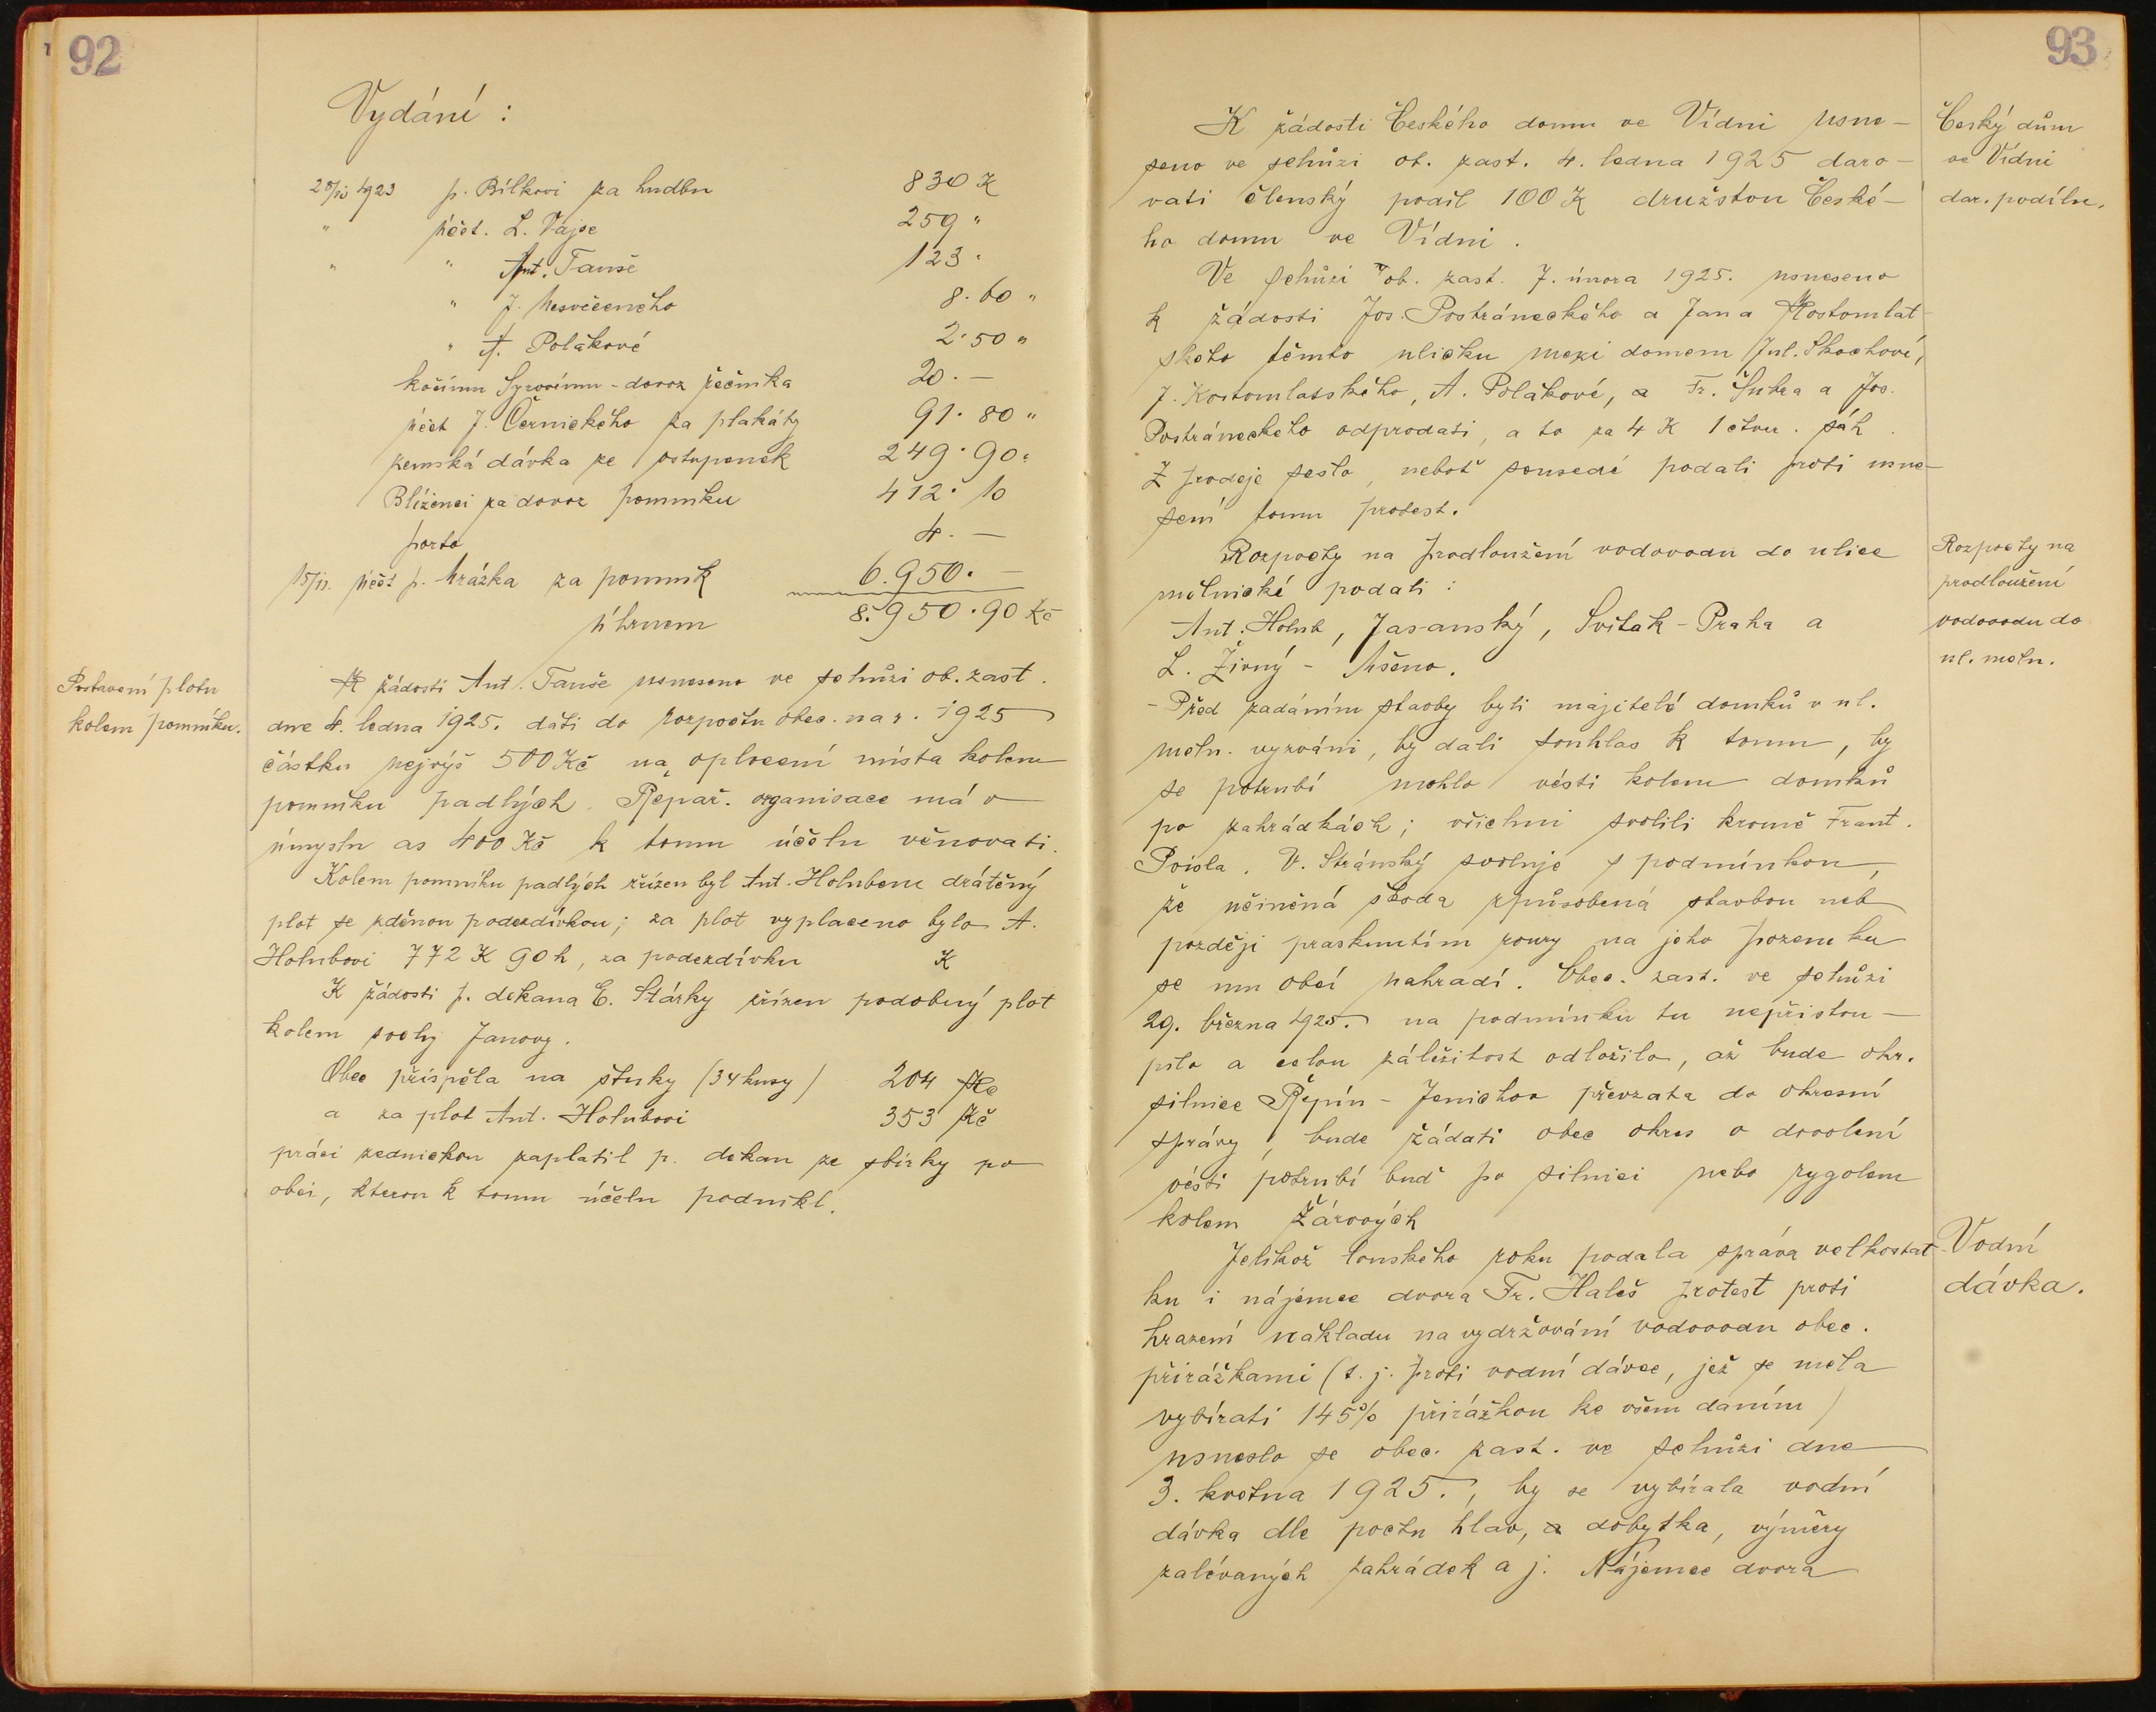 92
Vydání :
28/10 1923 p. Bílkovi za hudbu 830 K
" účet. L. Vajse 259 "
" " Ant. Tauše 123 "
" J. Nesvěceného 8.60 "
" A. Polákové 2.50 "
kočímu Syrovému - dovoz řečníka 20. —
účet J. Černického za plakáty 91.80 "
zemská dávka ze vstupenek 249.90 "
Blíženci za dovoz pomníku 412.10
porto 4. —
účet p. Mrázka za pomník 6.950. —
úhrnem 8.950.90 Kč
Postavení plotu
kolem pomníku.
K žádosti Ant. Tauše usneseno ve schůzi ob. zast.
dne 4. ledna 1925. dáti do rozpočtu obec. na r. 1925
částku nejvýš 500 Kč na oplocení místa kolem
pomníku padlých. Řepař. organisace má v
úmyslu as 400 Kč k tomu účelu věnovati.
Kolem pomníku padlých zřízen byl Ant. Holubem drátěný
plot se zděnou podezdívkou; za plot vyplaceno bylo A.
Holubovi 772 K 90 h, za podezdívku K
K žádosti p. dekana E. Stárky zřízen podobný plot
kolem sochy Janovy.
Obec přispěla na štuky (34 kusy) 204 Kč
a za plot Ant. Holubovi 353 Kč
práci zednickou zaplatil p. dekan ze sbírky po
obci, kterou k tomu účelu podnikl.
93
K žádosti Českého domu ve Vídni usne-
seno ve schůzi ob. zast. 4. ledna 1925 daro-
vati členský podíl 100 K družstvu České-
ho domu ve Vídni.
Český dům
ve Vídni
dar. podílu.
Ve schůzi ob. zast. 7. února 1925. usneseno
k žádosti Jos. Postráneckého a Jana Kostomlat-
ského těmto uličku mezi domem Jul. Skochové,
J. Kostomlatského, A. Polákové, a Fr. Šubra a Jos.
Postráneckého odprodati, a to za 4 K 1 čtver. sáh.
Z prodeje sešlo, neboť sousedé podali proti usne-
sení tomu protest.
Rozpočty na prodloužení vodovodu do ulice
mělnické podali :
Ant. Holub, Jasanský, Sviták - Praha a
L. Živný - Mšeno.
Rozpočty na
prodloužení
vodovodu do
ul. měln.
- Před zadáním stavby byli majitelé domků v ul.
měln. vyzváni, by dali souhlas k tomu, by
se potrubí mohlo vésti kolem domků
po zahrádkách; všichni svolili kromě Frant.
Poisla. V. Stránský svoluje s podmínkou,
že učiněná škoda způsobená stavbou neb
později prasknutím roury na jeho pozemku
se mu obcí nahradí. Obec. zast. ve schůzi
29. března 1925. na podmínku tu nepřistou-
pilo a celou záležitost odložilo, až bude okr.
silnice Řepín - Jenichov převzata do okresní
správy, bude žádati obec okres o dovolení
vésti potrubí buď po silnici nebo rygolem
kolem Žárových
Jelikož loňského roku podala správa velkostat-
ku i nájemce dvora Fr. Haleš protest proti
hrazení nákladu na vydržování vodovodu obec.
přirážkami (t. j. proti vodní dávce, jež se měla
vybírati 145% přirážkou ke všem daním)
usneslo se obec. zast. ve schůzi dne
3. května 1925., by se vybírala vodní
dávka dle počtu hlav, a dobytka, výměry
zalévaných zahrádek a j. Nájemce dvora
Vodní
dávka.